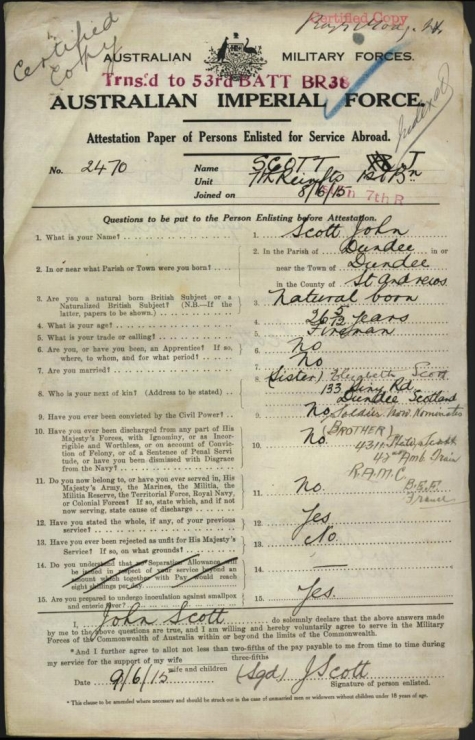 Certified Copy
Certified
Copy
AUSTRALIAN MILITARY FORCES.
Trns'd to 53rd BATT BR38
AUSTRALIAN IMPERIAL FORCE.
Indexed
Attestation Paper of Persons Enlisted for Service Abroad.
No. 2470 Name SCOTT J
Unit 7th Reinfts 1st Bn
Joined on 8/6/15
7th R
Questions to be put to the Person Enlisting before Attestation.
1. What is your Name? 1. Scott John
2. In or near what Parish or Town were you born? 2. In the Parish of Dundee in or
near the Town of Dundee
in the County of St Andrews
3. Are you a natural born British Subject or a
Naturalized British Subject? (N.B.—If the
latter, papers to be shown.) 3. Natural born
4. What is your age? 4. 26 5/12 years
5. What is your trade or calling? 5. Fireman
6. Are you, or have you been, an Apprentice? If so,
where, to whom, and for what period? 6. No
7. Are you married? 7. No
8. Who is your next of kin? (Address to be stated) 8. (Sister) Elizabeth Scott
133 Rd.
Dundee Scotland
9. Have you ever been convicted by the Civil Power? 9. No
Soldier Now Nominates
BROTHER
10. Have you ever been discharged from any part of His
Majesty's Forces, with Ignominy, or as Incor-
rigible and Worthless, or on account of Convic-
tion of Felony, or of a Sentence of Penal Servi-
tude, or have you been dismissed with Disgrace
from the Navy? 10. No.
Scott
47th Amb Train
R.A.M.C
B.E.F.
France
11. Do you now belong to, or have you ever served in, His
Majesty's Army, the Marines, the Militia, the
Militia Reserve, the Territorial Force, Royal Navy,
or Colonial Forces? If so, state which, and if not
now serving, state cause of discharge 11. No.
12. Have you stated the whole, if any, of your previous
service? 12. Yes
13. Have you ever been rejected as unfit for His Majesty's
Service? If so, on what grounds? 13. No.
14. Do you understand that no Separation Allowance will
be issued in respect of your service beyond an
amount which together with Pay would reach
eight shillings per day 14. —
15. Are you prepared to undergo inoculation against smallpox
and enteric fever? 15. Yes.
I, John Scott do solemnly declare that the above answers made
by me to the above questions are true, and I am willing and hereby voluntarily agree to serve in the Military
Forces of the Commonwealth of Australia within or beyond the limits of the Commonwealth.
*And I further agree to allot not less than two-fifths of the pay payable to me from time to time during
three-fifths
my service for the support of my wife
wife and children
Date 9/6/15 (Sgd) J Scott
Signature of person enlisted.
* This clause to be amended where necessary and should be struck out in the case of unmarried men or widowers without children under 18 years of age.